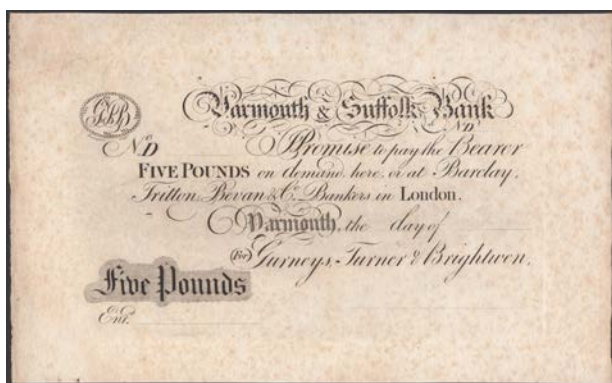 Yarmouth & Suffolk Bank
No D
No D
I Promise to pay the Bearer
FIVE POUNDS on demand, here, or at Barclay,
Tritton, Bevan & Co. Bankers in London.
Yarmouth, the day of
(For) Gurneys, Turner & Brightwen.
Five Pounds
Ent.